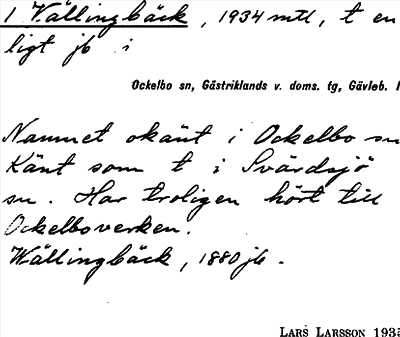 1 Vällingbäck, 1934 mtl, t en
ligt jb i
Ockelbo sn, Gästriklands v. doms. tg, Gävleb. l
Namnet okänt i Ockelbo sn
Känt som t i Svärdsjö
sn. Har troligen hört till
Ockelboverken.
Wällingbäck, 1880 jb.
LARS LARSSON 1935